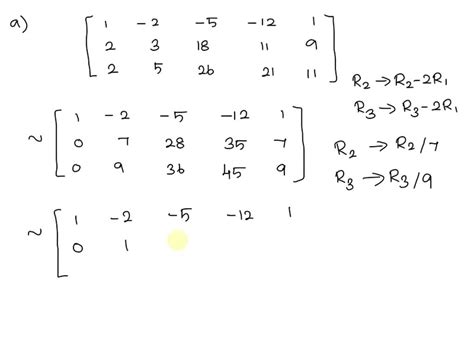 a) [ 1 -2 -5 -12 1
2 3 18 11 9
2 5 26 21 11 ]
R₂ → R₂-2R₁
R₃ → R₃-2R₁
~ [ 1 -2 -5 -12 1
0 7 28 35 7
0 9 36 45 9 ]
R₂ → R₂/7
R₃ → R₃/9
~ [ 1 -2 -5 -12 1
0 1